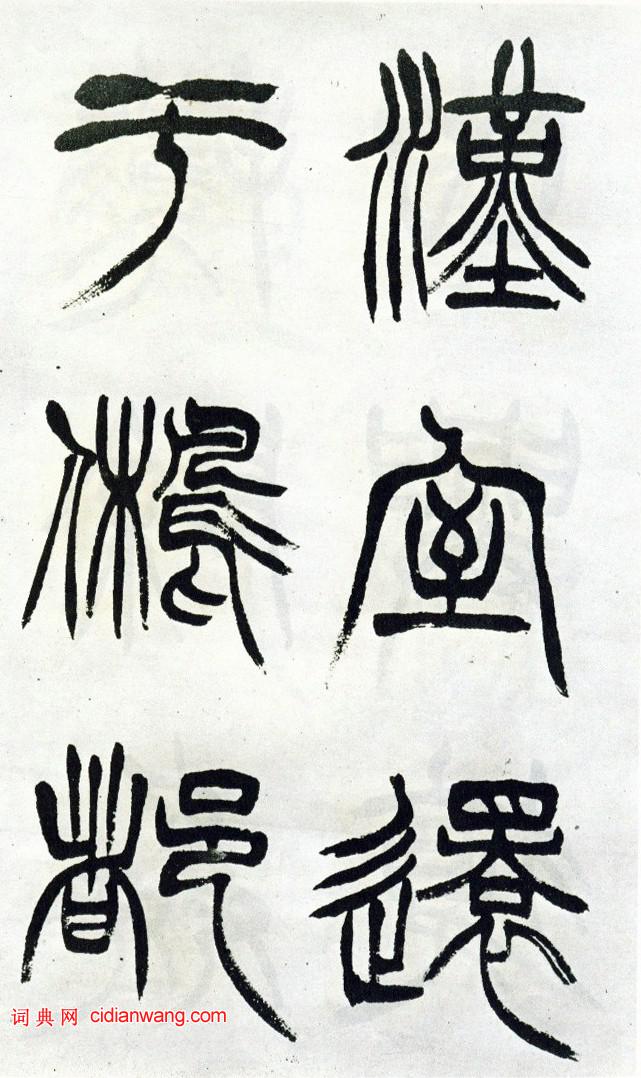 漢室還
于鵂都
词典网 cidianwang.com